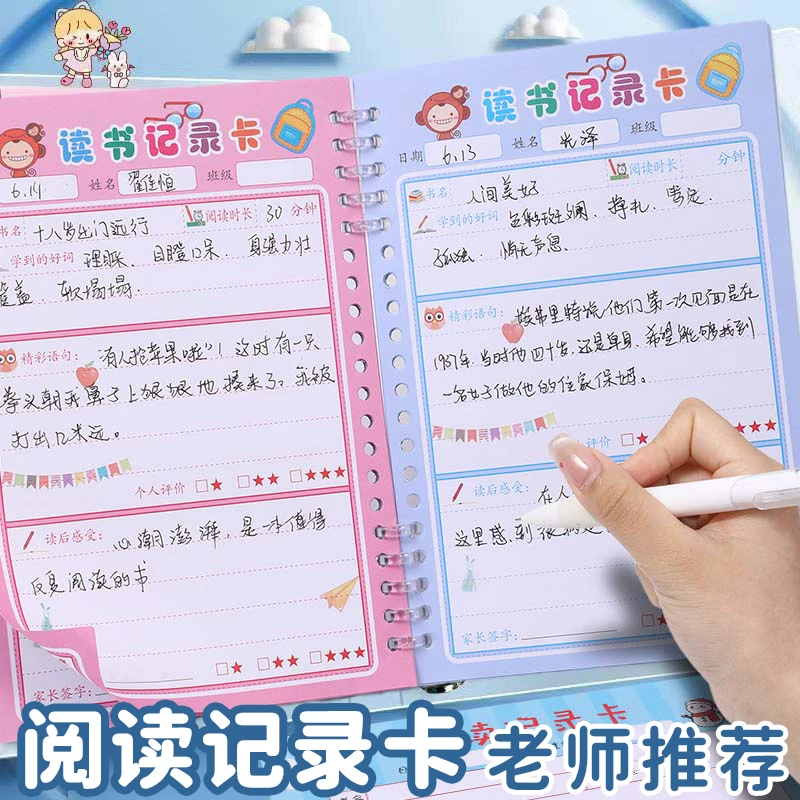 读书记录卡
6.14 姓名 翟佳恒 班级
书名 十八岁出门远行 阅读时长 30 分钟
学到的好词 理睬、目瞪口呆、身强力壮
软塌塌
精彩语句: 有人抢苹果啦"!这时有一只
拳头朝我鼻子上狠狠地揍来了。我被
打出几米远。
个人评价 □★ □★★ □★★★
读后感受: 心潮澎湃,是一本值得
反复阅读的书
□★ □★★ □★★★
家长签字:
读书记录卡
日期 6.13 姓名 光泽 班级
书名 人间美好 阅读时长 分钟
学到的好词 色彩斑斓、挣扎、笃定、
孤独、悄无声息.
精彩语句: 特说他们第一次见面是在
1987年,当时他四十岁,还是单身,希望能够找到
一名女子做他的住家保姆。
个人评价 □★ □★★ □★★★
读后感受: 在人
这里感到很
家长签字:
□★ □★★
读记录卡
阅读记录卡 老师推荐